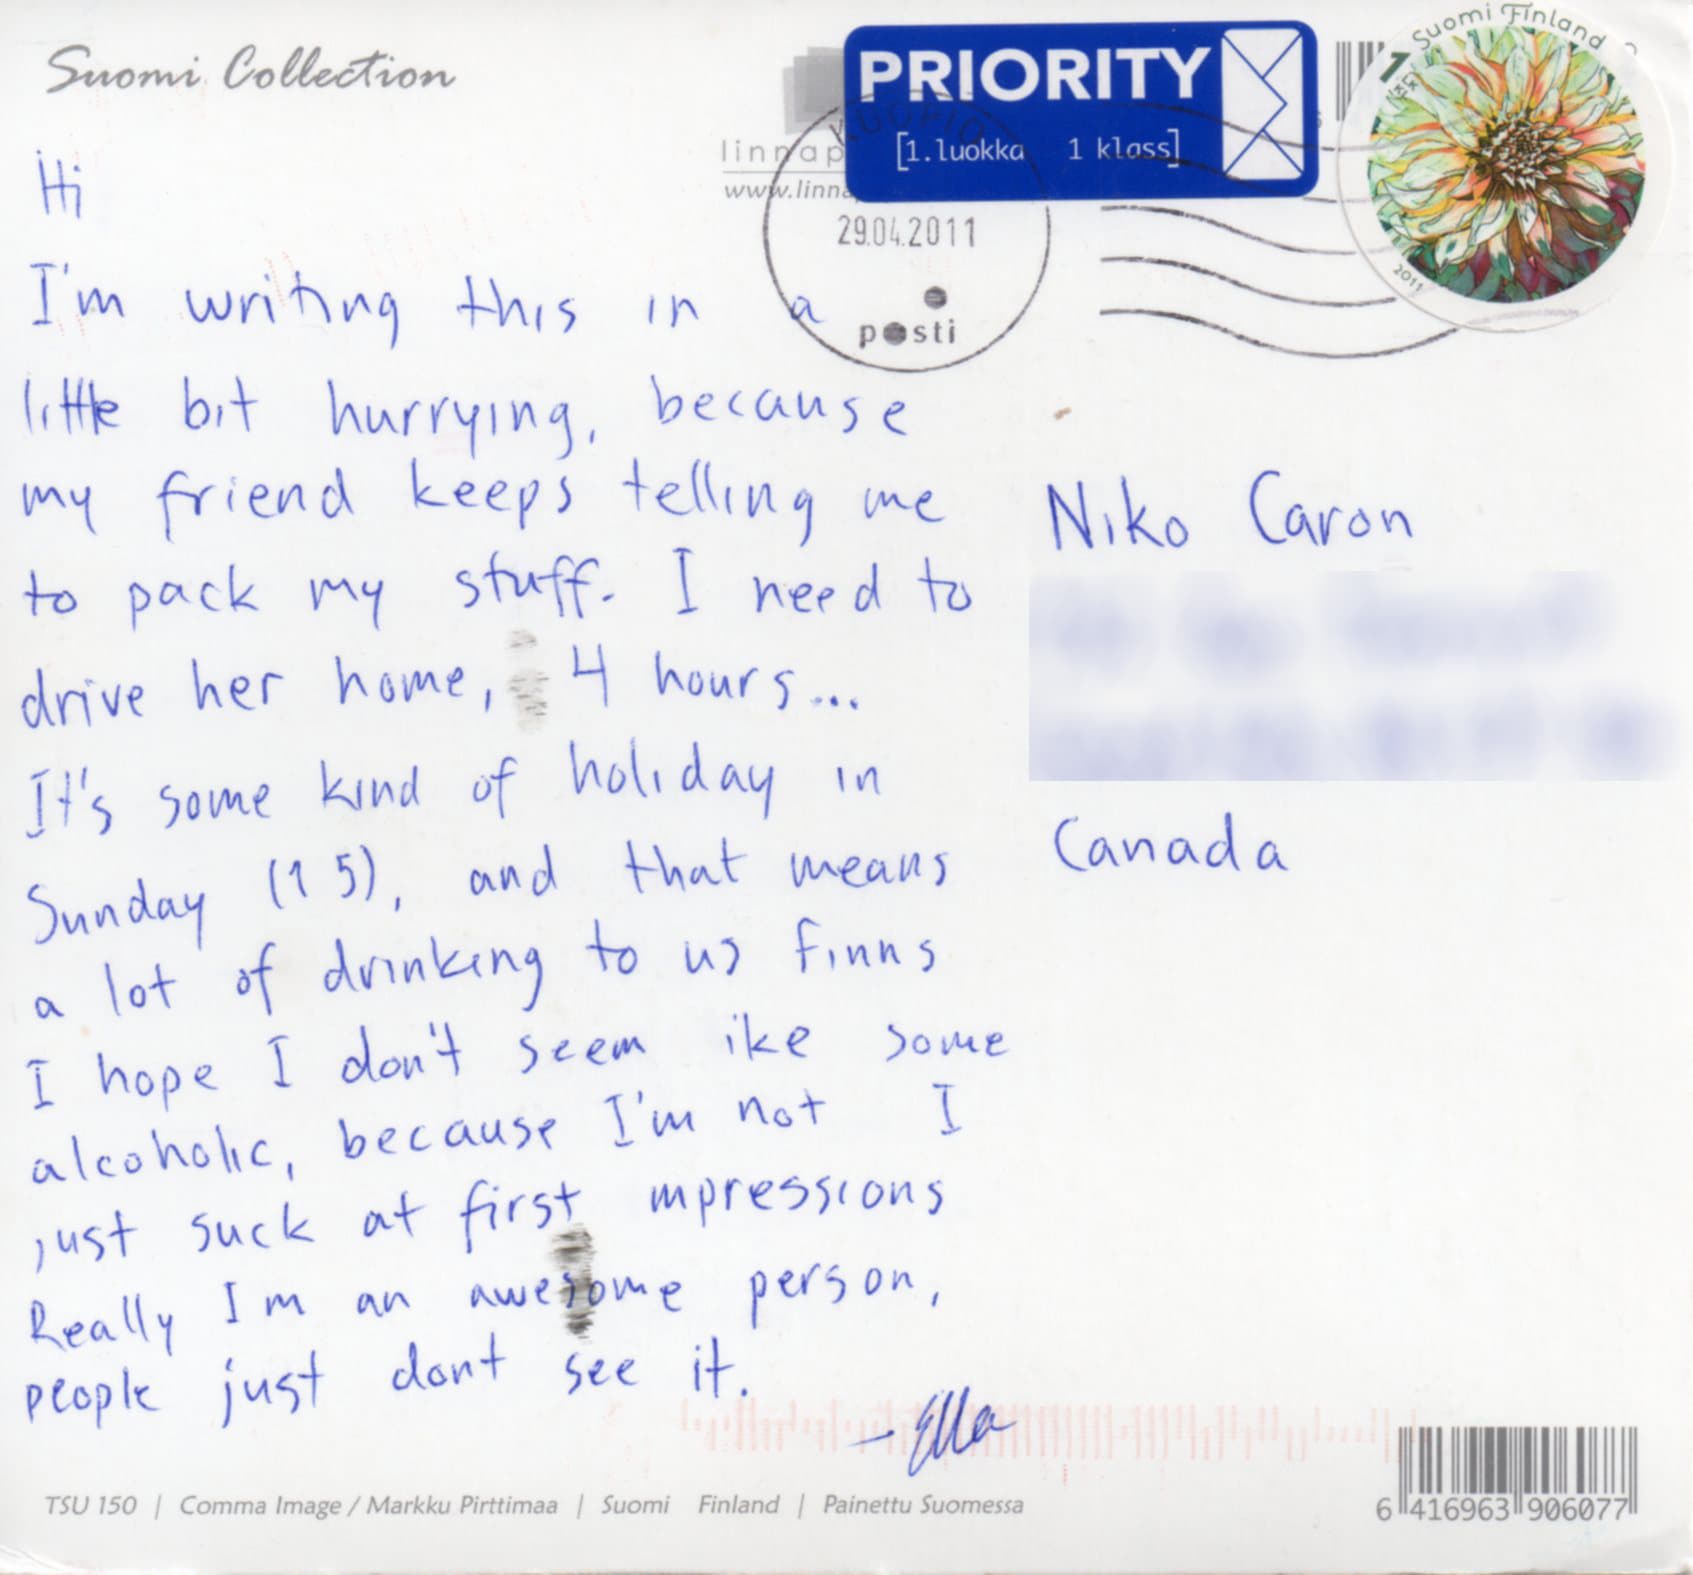 Suomi Collection
PRIORITY
[1.luokka 1 klass]
Suomi Finland
1
LK KL
2011
KUOPIO
29.04.2011
posti
linnap
www.linna
Hi
I'm writing this in a
little bit hurrying, because
my friend keeps telling me
to pack my stuff. I need to
drive her home, 4 hours...
It's some kind of holiday in
Sunday (1 5), and that means
a lot of drinking to us finns
I hope I don't seem ike some
alcoholic, because I'm not I
just suck at first mpressions
Really I'm an awesome person,
people just dont see it.
- Ella
Niko Caron
Canada
TSU 150 | Comma Image / Markku Pirttimaa | Suomi Finland | Painettu Suomessa
6 416963 906077